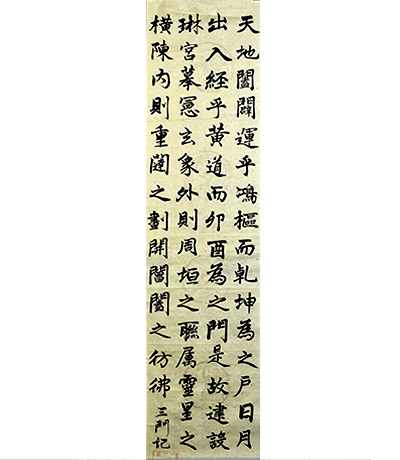 天地闔闢運乎鴻樞而乾坤為之戶日月
出入經乎黃道而卯酉為之門是故建設
琳宮摹憲玄象外則周垣之聯属靈星之
橫陳内則重闥之劃開閶闔之彷彿
三門記